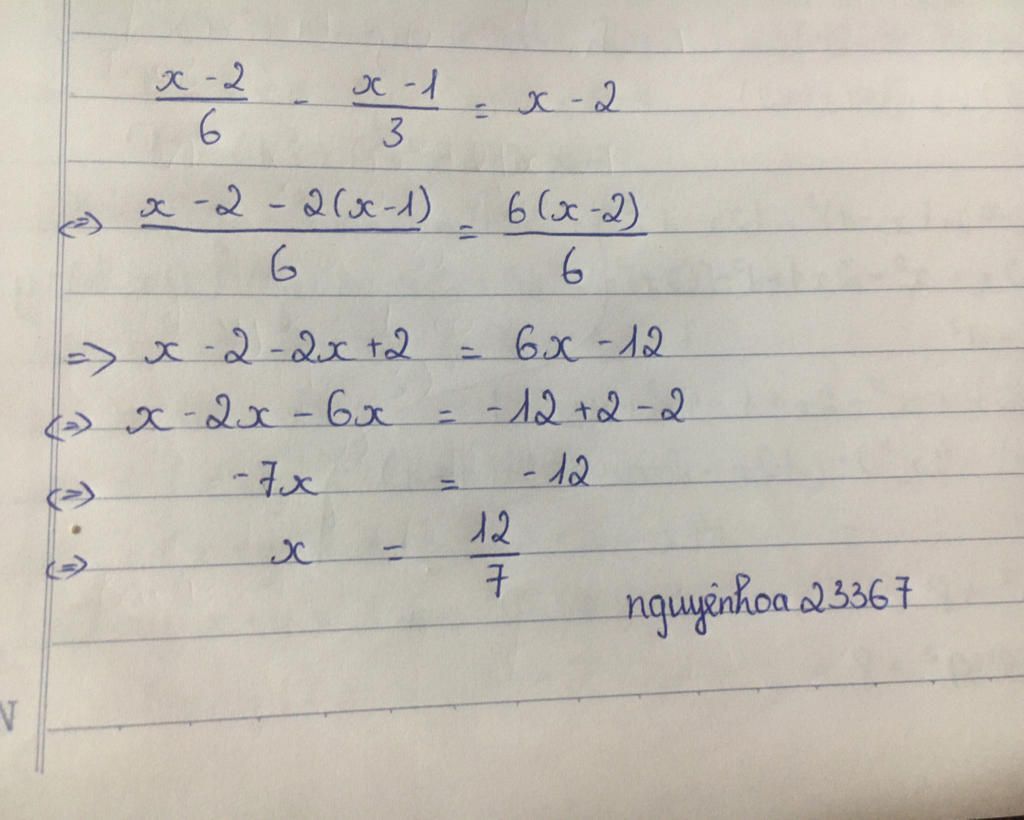 (x - 2)/6 - (x - 1)/3 = x - 2
<=> (x - 2 - 2(x-1))/6 = (6(x-2))/6
=> x - 2 - 2x + 2 = 6x - 12
<=> x - 2x - 6x = -12 + 2 - 2
<=> -7x = -12
<=> x = 12/7
nguyênhoa 23367
N